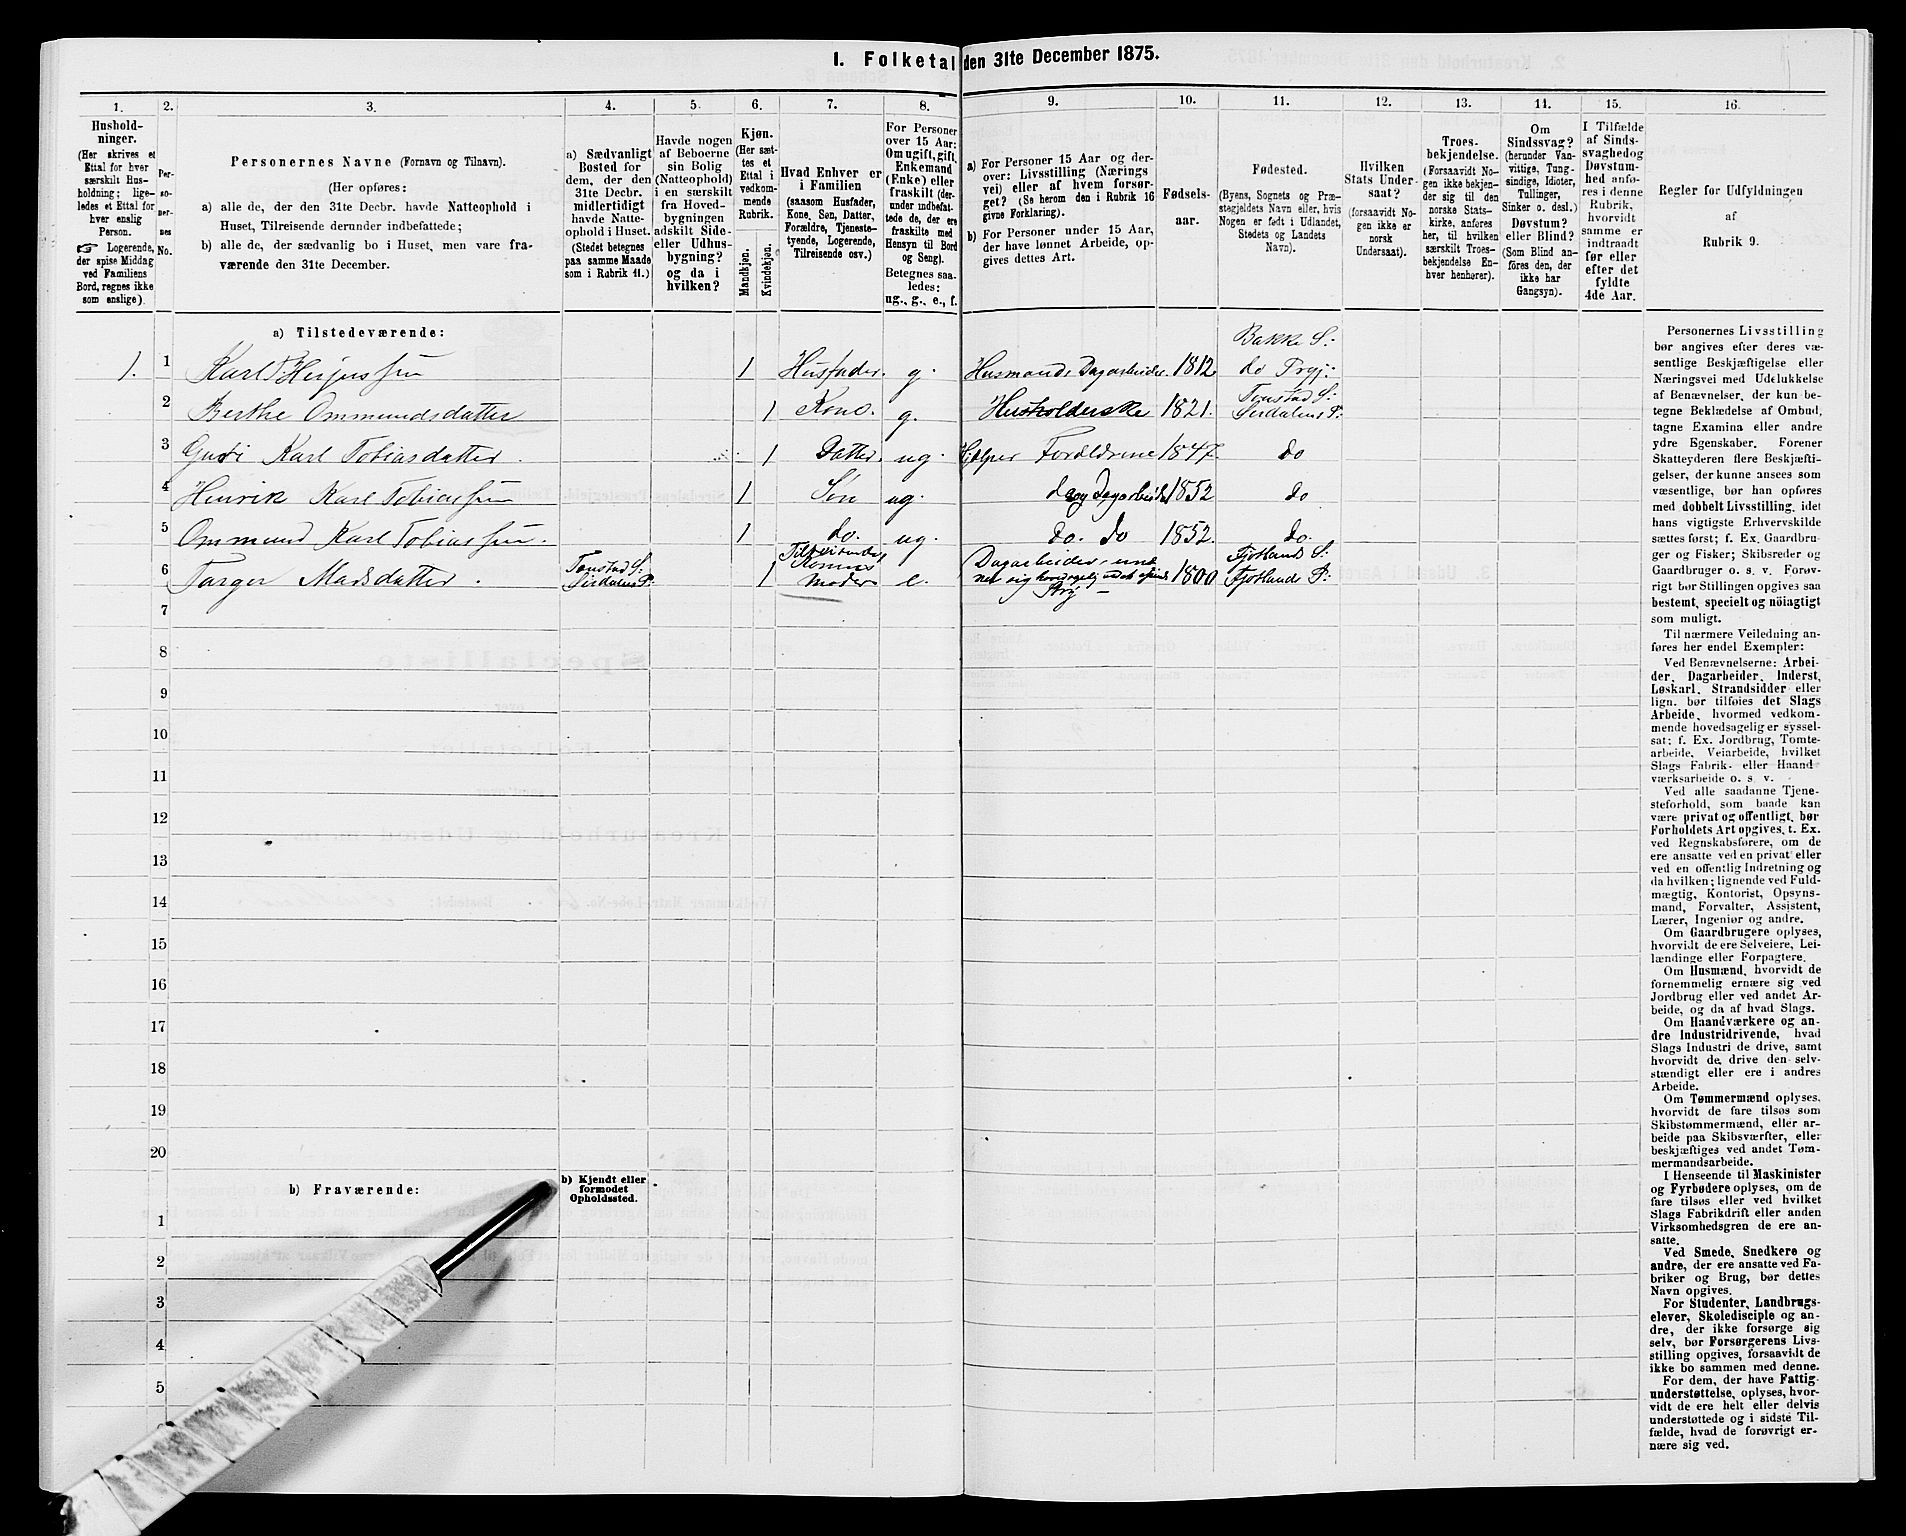 1. Folketal den 31te December 1875.
1. 2. 3. 4. 5. 6. 7. 8. 9. 10. 11. 12. 13. 14. 15. 16.
Hushold-
ninger.
(Her skrives et
Ettal for hver
særskilt Hus-
holdning; lige-
ledes et Ettal for
hver enslig
Person.
☞ Logerende,
der spise Middag
ved Familiens
Bord, regnes ikke
som enslige).
Per-
so-
ner-
nes
No.
Personernes Navne (Fornavn og Tilnavn).
(Her opføres:
a) alle de, der den 31te Decbr. havde Natteophold i
Huset, Tilreisende derunder indbefattede;
b) alle de, der sædvanlig bo i Huset, men vare fra-
værende den 31te December.
a) Sædvanligt
Bosted for
dem, der den
31te Decbr.
midlertidigt
havde Natte-
ophold i Huset.
(Stedet betegnes
paa samme Maade
som i Rubrik 11.)
Havde nogen
af Beboerne
sin Bolig
(Natteophold)
i en særskilt
fra Hoved-
bygningen
adskilt Side-
eller Udhus-
bygning?
og da i
hvilken?
Kjøn.
(Her sæt-
tes et
Ettal i
vedkom-
mende
Rubrik.
Mandkjøn.
Kvindekjøn.
Hvad Enhver er
i Familien
(saasom Husfader,
Kone, Søn, Datter,
Forældre, Tjeneste-
tyende, Logerende,
Tilreisende osv.)
For Personer
over 15 Aar:
Om ugift, gift,
Enkemand
(Enke) eller
fraskilt (der-
under indbefat-
tede de, der ere
fraskilte med
Hensyn til Bord
og Seng).
Betegnes saa-
ledes:
ug., g., e., f.
a) For Personer 15 Aar og der-
over: Livsstilling (Nærings
vei) eller af hvem forsør-
get? (Se herom den i Rubrik 16
givne Forklaring).
b) For Personer under 15 Aar,
der have lønnet Arbeide, op-
gives dettes Art.
Fødsels-
aar.
Fødested.
(Byens, Sognets og Præ-
stegjeldets Navn eller, hvis
Nogen er født i Udlandet,
Stedets og Landets
Navn).
Hvilken
Stats Under-
saat?
(forsaavidt No-
gen ikke er
norsk
Undersaat).
Troes-
bekjendelse.
(Forsaavidt No-
gen ikke bekjen-
der sig til den
norske Stats-
kirke, anføres
her, til hvilken
særskilt Troes-
bekjendelse En-
hver henhører).
Om
Sindssvag?
(herunder Van-
vittige, Tung-
sindige, Idioter,
Tullinger,
Sinker o. desl.)
Døvstum?
eller Blind?
(Som Blind an-
føres den, der
ikke har
Gangsyn).
I Tilfælde
af Sinds-
svaghed og
Døvstum-
hed anfø-
res i denne
Rubrik,
hvorvidt
samme er
indtraadt
før eller
efter det
fyldte
4de Aar.
Regler for Udfyldningen
af
Rubrik 9.
a) Tilstedeværende:
Bakke S:
1. 1 Karl 1 Husfader. g. Husmand Dagarbeider. 1812 do
Tonstad S:
2 Berthe Ommundsdatter 1 Kone. g. Husholderske 1821. Sirdalens P:
3 Karl Tobiasdatter. 1 Datter. ug. Hjelper Forældrene 1847 do
4 Henrik Karl Tobiassen 1 Søn ug. 1852 do
5 Ommund Karl Tobiassen. 1 do. ug. do. do 1852. do.
6 Targer Madsdatter. Tonstad S: Sirdalens P: 1 Tilreisende Konens Moder e. Dagarbeider, 1800 Fjotlands S: Fjotlands P:
7
8
9
10
11
12
13
14
15
16
17
18
19
20
b) Fraværende:
b) Kjendt eller
formodet
Opholdssted.
1
2
3
4
5
Personernes Livsstilling
bør angives efter deres væ-
sentlige Beskjæftigelse eller
Næringsvei med Udelukkelse
af Benævnelser, der kun be-
tegne Beklædelse af Ombud,
tagne Examina eller andre
ydre Egenskaber. Forener
Skatteyderen flere Beskjæfti-
gelser, der kunne ansees som
væsentlige, bør han opføres
med dobbelt Livsstilling, idet
hans vigtigste Erhvervskilde
sættes først; f. Ex. Gaardbru-
ger og Fisker; Skibsreder og
Gaardbruger o. s. v. Forøv-
rigt bør Stillingen opgives saa
bestemt, specielt og nöiagtigt
som muligt.
Til nærmere Veiledning an-
føres her endel Exempler:
Ved Benævnelserne: Arbei-
der, Dagarbeider, Inderst,
Løskarl, Strandsidder eller
lign. bør tilføies det Slags
Arbeide, hvormed vedkom-
mende hovedsagelig er syssel-
sat; f. Ex. Jordbrug, Tomte-
arbeide, Veiarbeide, hvilket
Slags Fabrik- eller Haand
værksarbeide o. s. v.
Ved alle saadanne Tjene-
steforhold, som baade kan
være privat og offentligt, bør
Forholdets Art opgives, t. Ex.
ved Regnskabsførere, om de
ere ansatte ved en privat eller
ved en offentlig Indretning og
da hvilken; lignende ved Fuld-
mægtig, Kontorist, Opsyns-
mand, Forvalter, Assistent,
Lærer, Ingeniør og andre.
Om Gaardbrugere oplyses,
hvorvidt de ere Selveiere, Lei-
lændinge eller Forpagtere.
Om Husmænd, hvorvidt de
fornemmelig ernære sig ved
Jordbrug eller ved andet Ar-
beide, og da af hvad Slags.
Om Haandværkere og an-
dre Industridrivende, hvad
Slags Industri de drive, samt
hvorvidt de drive den selv-
stændigt eller ere i andres
Arbeide.
Om Tømmermænd oplyses,
hvorvidt de fare tilsøs som
Skibstømmermænd, eller ar-
beide paa Skibsværfter, eller
beskjæftiges ved andet Tøm-
mermandsarbeide.
I Henseende til Maskinister
og Fyrbødere oplyses, om de
fare tilsøs eller ved hvilket
Slags Fabrikdrift eller anden
Virksomhedsgren de ere an-
satte.
Ved Smede, Snedkere og
andre, der ere ansatte ved Fa-
briker og Brug, bør dettes
Navn opgives.
For Studenter, Landbrugs-
elever, Skoledisciple og an-
dre, der ikke forsørge sig
selv, bør Forsørgerens Livs-
stilling opgives, forsaavidt de
ikke bo sammen med denne.
For dem, der have Fattig-
understøttelse, oplyses, hvor-
vidt de ere helt eller delvis
understøttede og i sidste Til-
fælde, hvad de forøvrigt er-
nære sig ved.